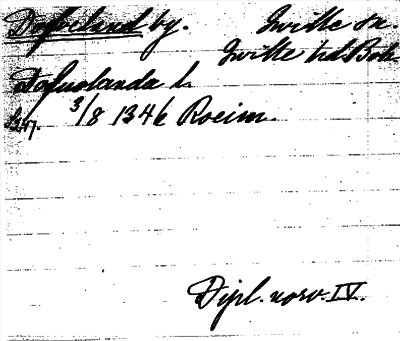 Dofueland by. Tvitte sn.
Tvitte td. Boh.
Dofuolanda l.
3/8 1346 Roeim.
Dipl. norv. IV.